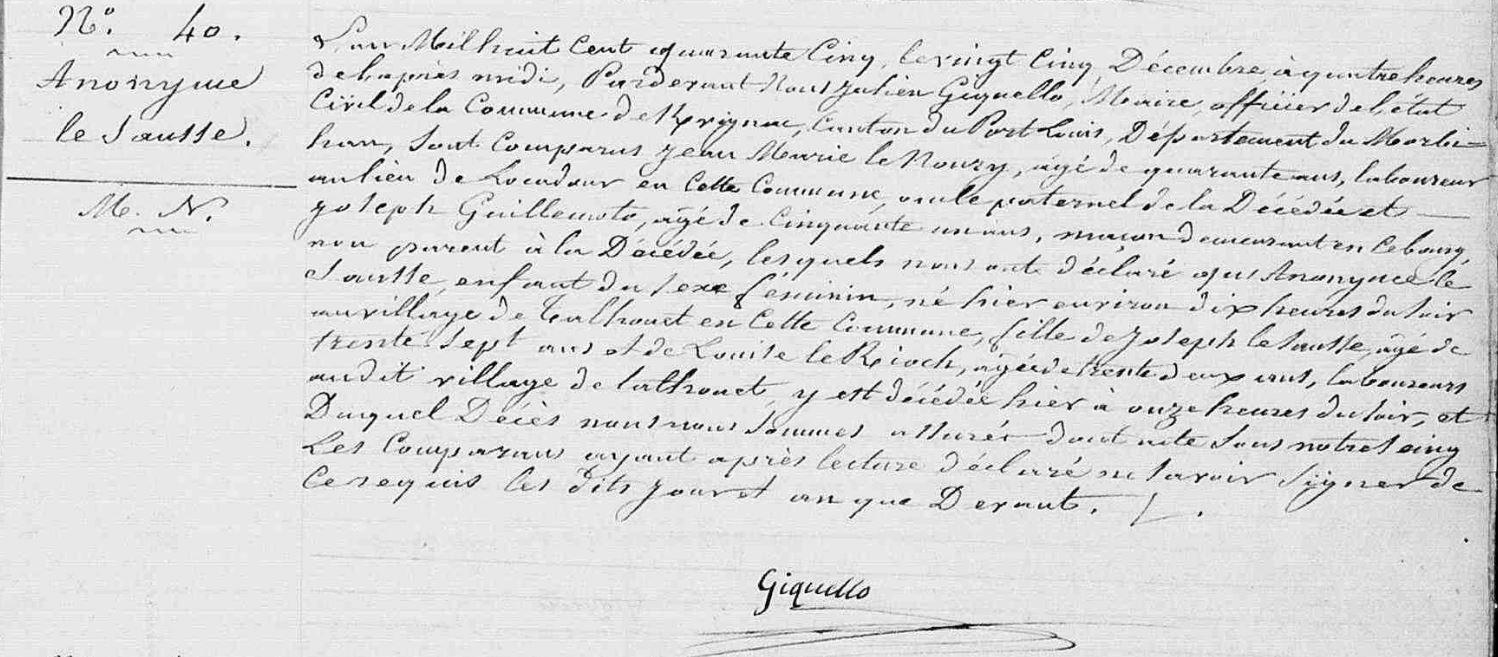 N.o 40.
Anonyme
le Sausse.
M. N.
L'an Mil huit Cent quarante Cinq, le vingt Cinq Décembre, à quatre heures
de l'après midi, Pardevant Nous Julien Giquello, Maire, officier de l'état
Civil de la Commune de Kvignac, Canton du Port Louis, Département du Morbi-
han, Sont Comparus Jean Marie le Rouzy, âgé de quarante ans, laboureur
au lieu de Locadour en Cette Commune, oncle paternel de la Décédée et
Joseph Guillemoto, âgé de Cinquante un ans, maçon demeurant en ce bourg,
non parent à la Décédée, lesquels nous ont déclaré que Anonyme le
Sausse, enfant du sexe féminin, né hier environ dix heures du soir
au village de Talhouet en Cette Commune, fille de Joseph le Sausse, âgé de
trente Sept ans et de Louise le Rioch, âgée de trente deux ans, laboureurs
audit village de talhouet, y est décédée hier à onze heures du soir, et
Duquel Décès nous nous sommes assurés dont acte Sous notre Seing
Les Comparans ayant après lecture déclaré ne savoir Signer de
Ce requis les dits jour et an que Devant.
Giquello